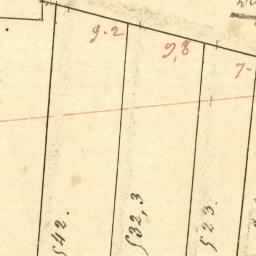 9-2
9,8
7-
542.
532,3
523.